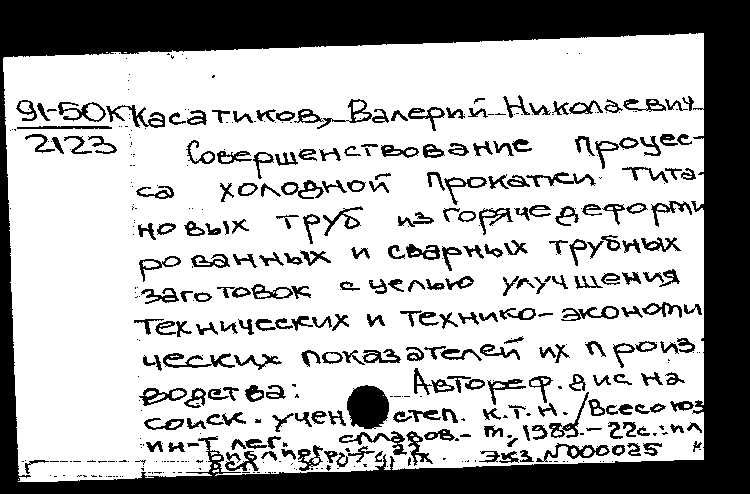 91-50К Касатиков, Валерий Николаевич
2123
Совершенствование процес-
са холодной прокатки тита-
новых труб из горячедеформи
рованных и сварных трубных
заготовок с целью улучшения
технических и технико-экономи
ческих показателей их произ
водства: Автореф. дис на
соиск. учен. степ. к.т.н. / Всесоюз
ин-т лег. сплавов. - М, 1989. - 22с.: ил
Библиогр.: с. 22
ДСП экз. N000025